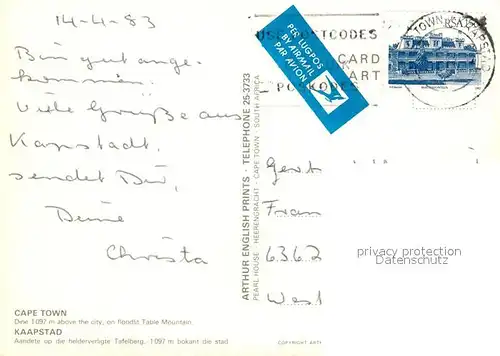 14-4-83
Bin gut ange-
kommen.
Viele Grüße aus
Kapstadt,
sendet Dir,
Deine
Christa
CAPE TOWN
Dine 1 097 m above the city, on floodlit Table Mountain.
KAAPSTAD
Aandete op die helderverligte Tafelberg, 1 097 m bokant die stad
ARTHUR ENGLISH PRINTS · TELEPHONE 25-3733
PEARL HOUSE · HEERENGRACHT · CAPE TOWN · SOUTH AFRICA
COPYRIGHT ARTH
PER LUGPOS
BY AIRMAIL
PAR AVION
USE POSTCODES
CARD
ART
POSKODES
TOWN
KAAPSTAD
Gert
Fran
6362
West
privacy protection
Datenschutz